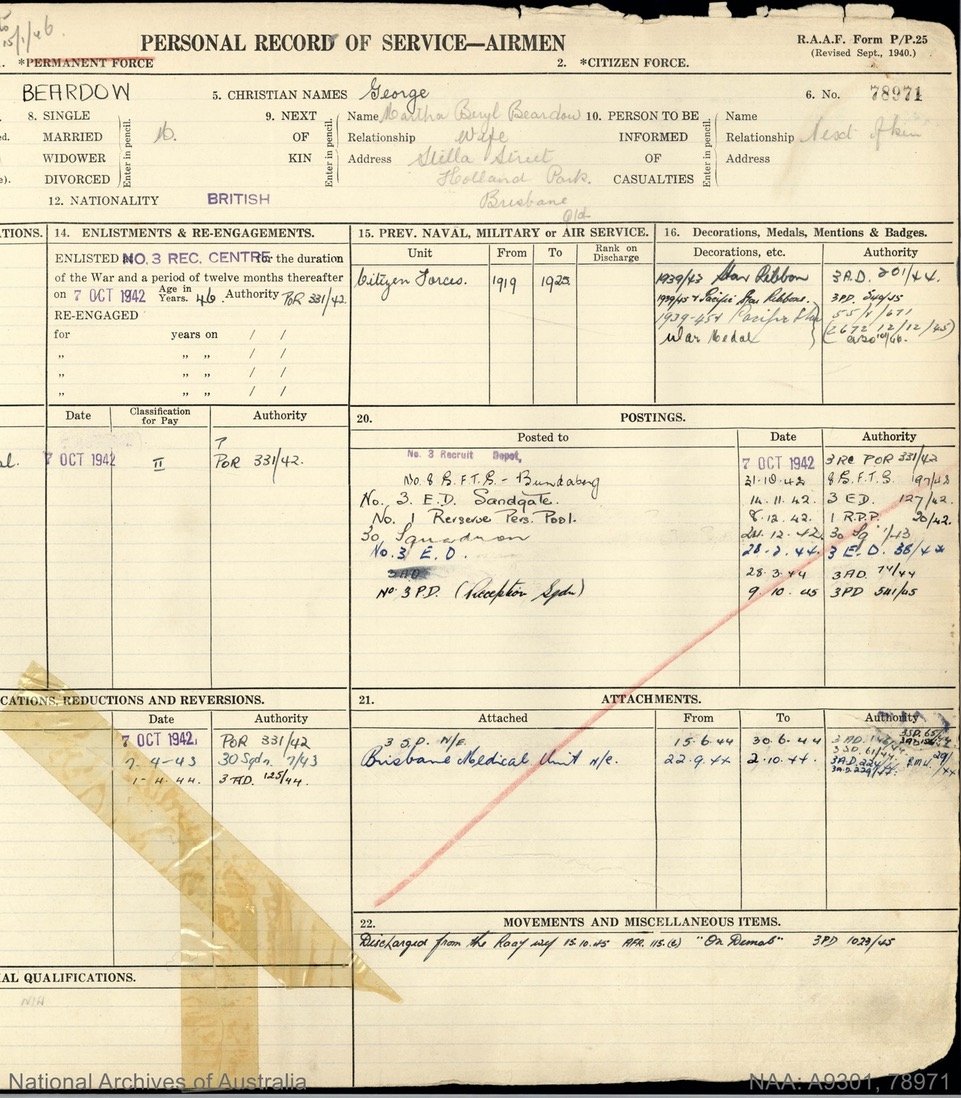 15/1/46.
PERSONAL RECORD OF SERVICE—AIRMEN
R.A.A.F. Form P/P.25
(Revised Sept., 1940.)
*PERMANENT FORCE
2. *CITIZEN FORCE.
BEARDOW
5. CHRISTIAN NAMES George
6. No. 78971
8. SINGLE
MARRIED
WIDOWER
DIVORCED
Enter in pencil.
M.
9. NEXT
OF
KIN
Enter in pencil.
Name Martha Beryl Beardow
Relationship Wife
Address Stilla Street
Holland Park.
Brisbane
Qld
10. PERSON TO BE
INFORMED
OF
CASUALTIES
Enter in pencil.
Name
Relationship Next of kin
Address
12. NATIONALITY BRITISH
TIONS.
14. ENLISTMENTS & RE-ENGAGEMENTS.
ENLISTED NO. 3 REC. CENTRE for the duration
of the War and a period of twelve months thereafter
on 7 OCT 1942 Age in Years. 46. Authority POR 331/42.
RE-ENGAGED
for years on / /
„ „ „ / /
„ „ „ / /
„ „ „ / /
15. PREV. NAVAL, MILITARY or AIR SERVICE.
Unit From To Rank on Discharge
Citizen Forces. 1919 1925
16. Decorations, Medals, Mentions & Badges.
Decorations, etc. Authority
1939/43 Star Ribbon 3 A.D. 201/44.
1939/45 & Pacific Star Ribbons. 3 P.D. 540/45
1939-45 & Pacific Star 55/1/671
War Medal (2672 12/12/45)
Date Classification for Pay Authority
al. 7 OCT 1942 II POR 331/42.
20. POSTINGS.
Posted to Date Authority
No. 3 Recruit Depot, 7 OCT 1942 3 RC POR 331/42
No. 8 S.F.T.S - Bundaberg 21.10.42 8 S.F.T.S. 197/42
No. 3 E.D. Sandgate. 14.11.42. 3 ED. 127/42.
No. 1 Reserve Pers. Pool. 8.12.42. 1 R.P.P. 20/42.
30 Squadron 24.12.42. 30 Sq 1/43
No. 3 E.D. 28-2.44. 3 E.D. 38/44
3AD 28.3.44 3AD. 74/44
No. 3 P.D. (Reception Sqdn) 9.10.45 3PD 541/45
CATIONS, REDUCTIONS AND REVERSIONS.
Date Authority
7 OCT 1942 POR 331/42
7-4-43 30 Sqdn. 7/43
1-4.44. 3 AD. 125/44.
21. ATTACHMENTS.
Attached From To Authority
3 S.D. N/E. 15.6.44 30.6.44
Brisbane Medical Unit N/E. 22.9.44 2.10.44.
3 SD. 65/44
3 SD. 61/44
3 A.D. 224/44
3 A.D. 229/44.
22. MOVEMENTS AND MISCELLANEOUS ITEMS.
Discharged from the RAAF wef 15.10.45 AFR. 115.(E) "On Demob" 3PD 1023/45
AL QUALIFICATIONS.
N/A
National Archives of Australia
NAA: A9301, 78971